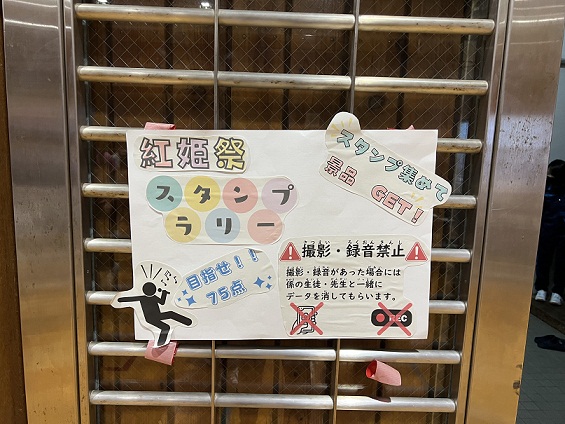 紅姫祭
スタンプ
ラリー
スタンプ集めて
景品 GET!
目指せ!!
75点
撮影・録音禁止
撮影・録音があった場合には
係の生徒・先生と一緒に
データを消してもらいます。
REC